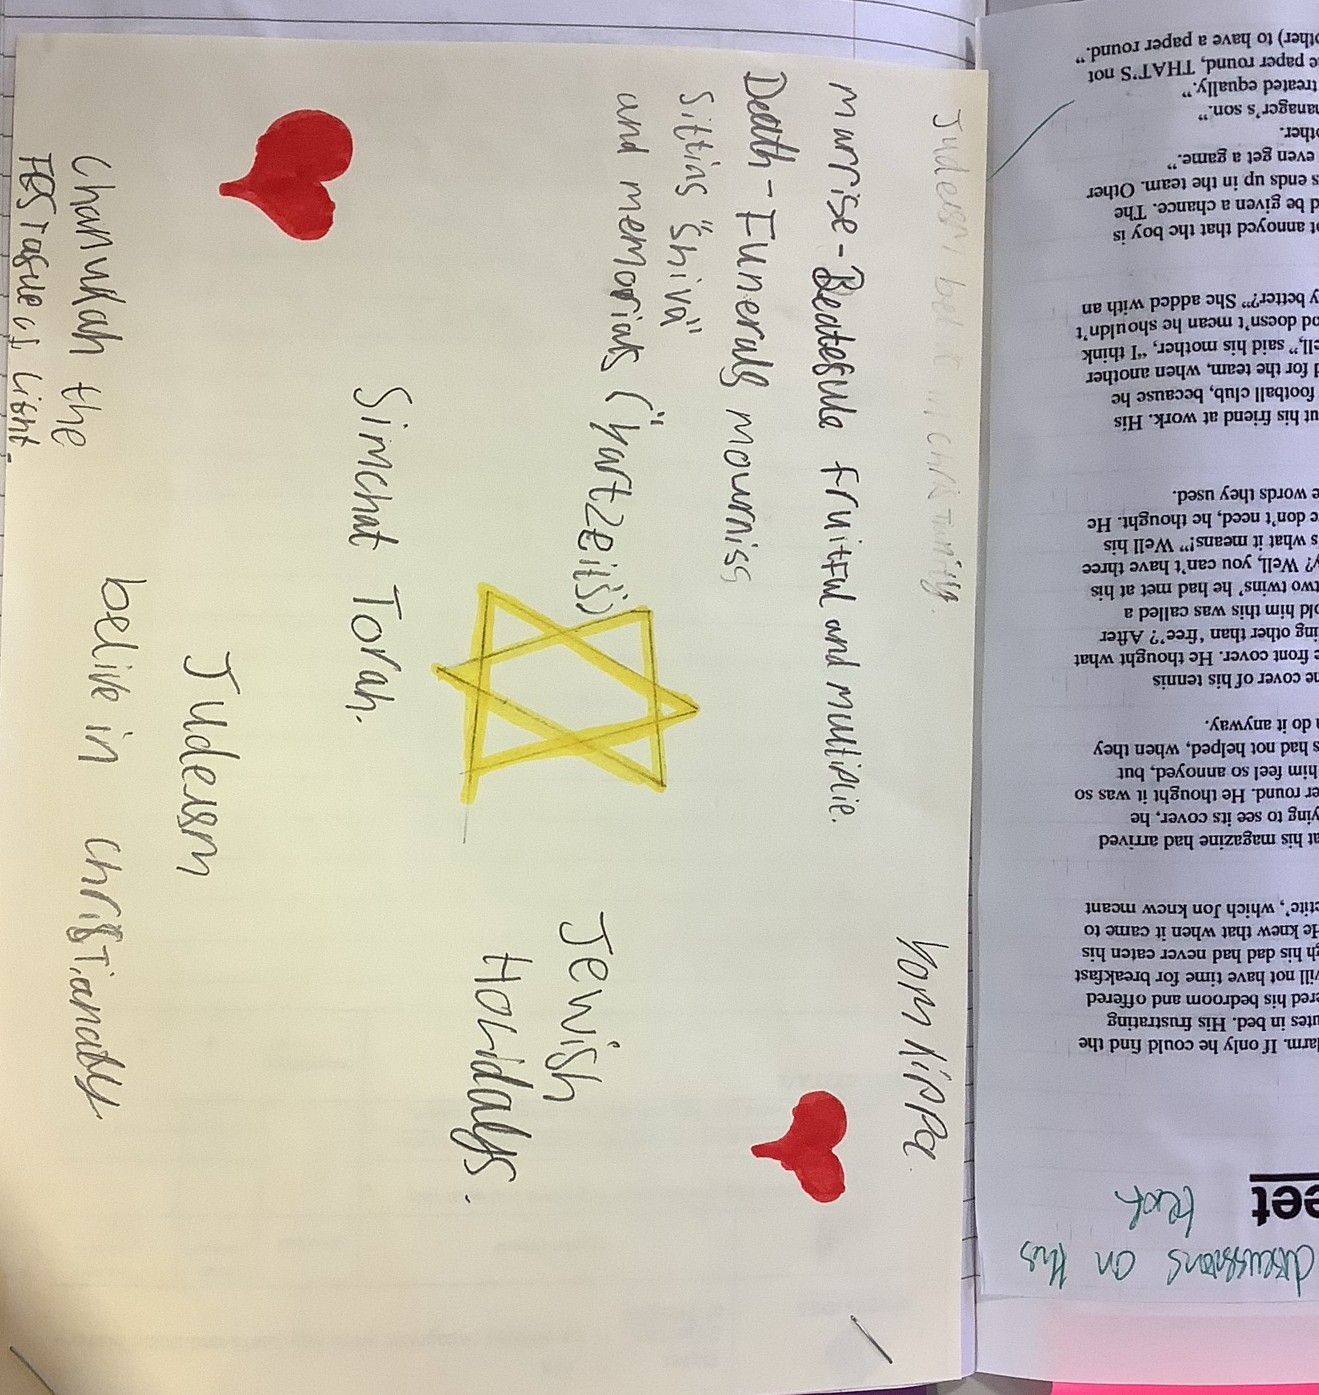 Judersm belive in christianity.
marrise - Beatefule fruitful and multiplie.
Death - Funerals mourniss
Sittins "shiva"
and memorials ("yartzeits")
Simchat Torah.
Chanukah the
festaule of Light.
Yom Kippa.
Jewish
Holidays.
Judersm
belive in christianaty.
discussions on this
text
eet
larm. If only he could find the
utes in bed. His frustrating
ered his bedroom and offered
will not have time for breakfast
gh his dad had never eaten his
He knew that when it came to
etite', which Jon knew meant
at his magazine had arrived
ying to see its cover, he
er round. He thought it was so
him feel so annoyed, but
s had not helped, when they
n do it anyway.
he cover of his tennis
e front cover. He thought what
ing other than 'free'? After
old him this was called a
two twins' he had met at his
y? Well, you can't have three
s what it means!" Well his
e don't need, he thought. He
e words they used.
ut his friend at work. His
football club, because he
d for the team, when another
ell," said his mother, "I think
od doesn't mean he shouldn't
y better?" She added with an
ot annoyed that the boy is
d be given a chance. The
s ends up in the team. Other
even get a game."
other.
manager's son."
treated equally."
e paper round, THAT'S not
other) to have a paper round."